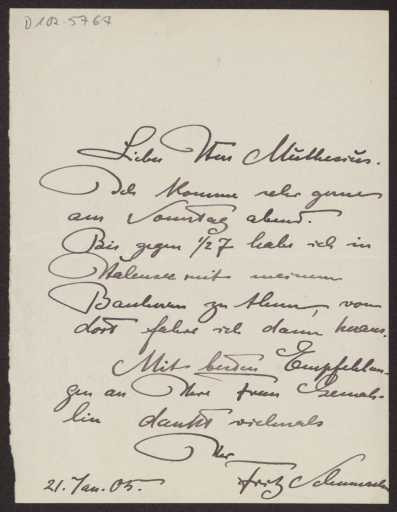 D 102-5767
Lieber Herr Muthesius.
Ich komme sehr gerne
am Sonntag abend.
Bis gegen 1/27 habe ich in
Halensee mit meinem
Bauherrn zu thun, von
dort fahre ich dann heraus.
Mit besten Empfehlun-
gen an Ihre Frau Gemah-
lin dankt vielmals
Ihr
Fritz Schumacher
21. Jan. 05.